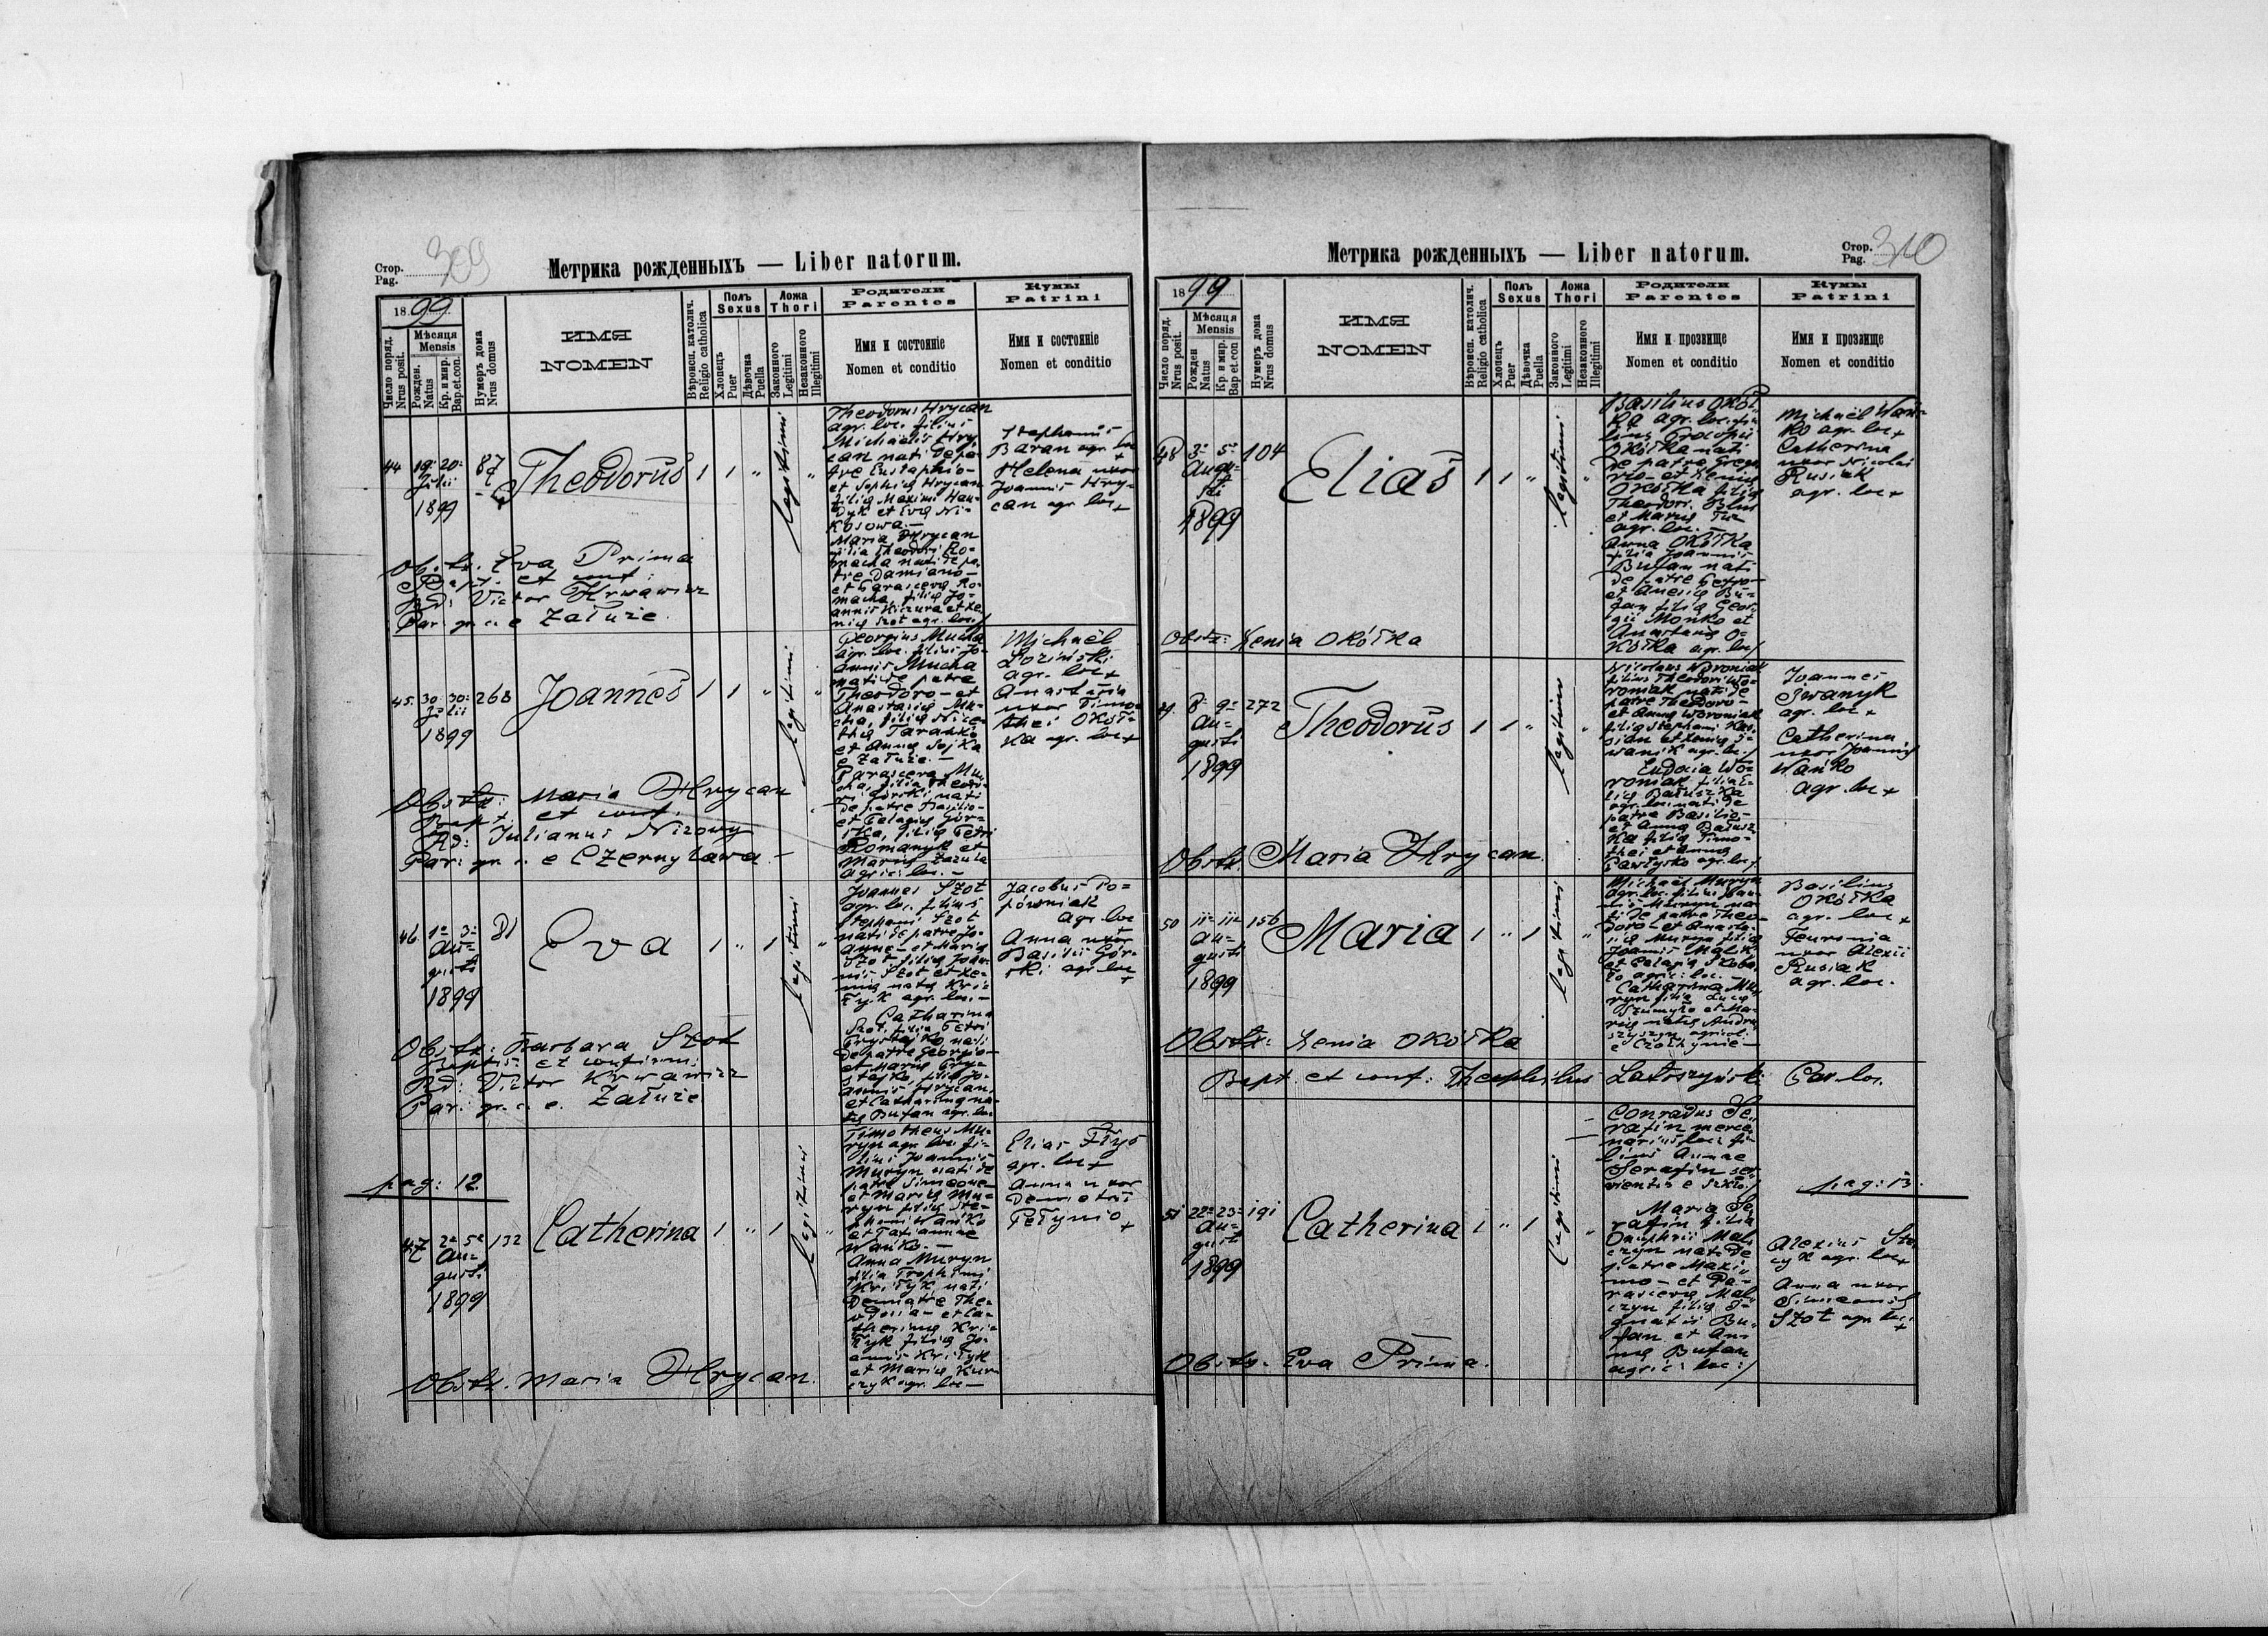 Стор. 309
Pag.
Метрика рожденныхъ — Liber natorum.
1899
Число поряд.
Nrus posit.
Мѣсяця
Mensis
Рожден.
Natus
Кр. и мир.
Bap. et. con.
Нумеръ дома
Nrus domus
ИМЯ
NOMEN
Вѣроисп. католич.
Religio catholica
Полъ
Sexus
Хлопець
Puer
Дѣвочка
Puella
Ложа
Thori
Законного
Legitimi
Незаконного
Illegitimi
Родители
Parentes
Имя и состояніе
Nomen et conditio
Кумы
Patrini
Имя и состояніе
Nomen et conditio
44 19. 20. Julii 1899
87
Theodorus 1 1 " legitimi "
Theodorus Hrycan
agr. loc. filius
Michaelis Hry-
can nati de pa-
tre Eustaphio-
et Sophia Hrycan
filia Maximi
et Eva
Maria Hrycan
filia Theodori Ro-
macha nati de pa-
tre Damiano-
et Parasceva Ro-
macha, filia Jo-
annis
agr. loc.
Stephanus
Baran agr. loc
+
Helena uxor
Joannis Hry-
can agr. loc +
Obstr. Eva Prima
Bapt. et conf:
Rd: Victor
Par. gr. c. e Załuże.
45. 30. 30. Julii 1899
268
Joannes 1 1 " legitimi "
Georgius Mucha
agr. loc. filius Jo-
annis Mucha
nati de patre
Theodoro - et
Anastasia Mu-
cha, filia Nice-
tha
et Anna Sojka
e Załuże. -
Parasceva Mu-
cha, filia Theodo-
ri Górski nati
de patre Basilio-
et Pelagia Gór-
ska, filia Petri
Romanyk et
Maria Zazula
agric: loc. -
Michaël
Łoziński
agr. loc +
Anastasia
uxor Timo-
thei Okół-
ka agr. loc +
Obstr: Maria Hrycan
Bapt. et conf.
Rd: Julianus Nizowy
Par: gr. c. e Czernylawa -
46. 1. 3. Au- gusti 1899
81
Eva 1 " 1 legitimi "
Joannes Szot
agr. loc. filius
Stephani Szot
nati de patre Jo-
anne - et Maria
Szot filia Joan-
nis Szot et Xe-
nia nata
agr. loc. -
Catharina
Szot, filia Petri
nati
de patre Georgio-
et Maria
filia Jo-
annis Hrycan,
et Catharina na-
ta Bufan agr. loc
Jacobus
agr. loc
+
Anna uxor
Basilii Gór-
ski agr. loc
+
Obstr: Barbara Szot
Baptis. et confirm:
Rd: Victor
Par. gr. c. e. Załuże
pag: 12.
47 2. 5. Au- gusti 1899
132
Catherina 1 " 1 legitimi "
Timotheus Mu-
ryn agr. loc. fi-
lius Joannis
Muryn nati de
patre Simeone-
et Maria Mu-
ryn filia Ste-
phani Wańko
et Tatianae
Wańko. -
Anna Muryn
filia Trophimi
nati
et Ca-
therina
filia Jo-
annis
et Maria
agr. loc -
Elias
agr. loc +
Anna uxor
Demetrii
+
Obstr. Maria Hrycan.
Метрика рожденныхъ — Liber natorum.
Стор. 310
Pag.
1899
Число поряд.
Nrus posit.
Мѣсяця
Mensis
Рожден
Natus
Кр. и мир.
Bap et.con
Нумеръ дома
Nrus domus
ИМЯ
NOMEN
Вѣроисп. католич.
Religio catholica
Полъ
Sexus
Хлопець
Puer
Дѣвочка
Puella
Ложа
Thori
Законного
Legitimi
Незаконного
Illegitimi
Родители
Parentes
Имя и прозвище
Nomen et conditio
Кумы
Patrini
Имя и прозвище
Nomen et conditio
48 3. 5. Augu- sti 1899
104
Elias 1 1 " legitimi "
Basilius Okół-
ka agr. loc. fi-
lius Procopii
Okółka nati
de patre Grego-
rio - et Xenia
Okółka filia
Theodori
et Maria
agr. loc. -
Anna Okółka
filia Joannis
Bufan nati
de patre
et Anesia Bu-
fan filia Geor-
gii Mońko et
Anastasia O-
kółka agr. loc/
Michaël Wań-
ko agr. loc +
Catherina
uxor Nicolai
Rusiak
agr. loc +
Obstr: Xenia Okółka
49. 8. 9. Au- gusti 1899
272
Theodorus 1 1 " legitimi "
Nicolaus Woroniak
filius Theodori Wo-
roniak nati de
patre Theodoro -
et Anna Woroniak
filia Stephani Kas-
sian et Xenia I-
wanik agr. loc./
Eudocia Wo-
roniak filia E-
lia
agr. loc. nati de
patre Basilio -
et Anna
filia Timo-
thei et Anna
agr. loc/
Joannes
Iwanyk
agr. loc +
Catherina
uxor Joannis
Wańko
agr. loc +
Obstr. Maria Hrycan
50 11. 11. Au- gusti 1899
156
Maria 1 " 1 legitimi "
Michaël Muryn
agr. loc. filius Joan-
nis Muryn na-
ti de patre Theo-
doro - et Anasta-
sia Muryn filia
Joannis Malik
et Pelagia
agric: loc. -
Catharina Mu-
ryn filia Luca
et Ma-
ria nata Andru-
szyszyn agricol.
e
Basilius
Okółka
agr. loc +
Feuronia
uxor Alexii
Rusiak
agr. loc.
Obstr: Xenia Okółka
Bapt. et conf: Theophilus Łatoszyński Par. loc.
Conradus Se-
rafin merce-
narius loc: fi-
lius Annae
Serafin ser-
vientis e Szkło./
pag: 13.
51 22. 23. Au- gust 1899
191
Catherina 1 " 1 legitimi "
Maria Se-
rafin filia
Onuphrii Mal-
czyn nati de
patre Maxi-
mo - et Pa-
rasceva Mal-
czyn filia I-
gnatii Bu-
fan et An-
na Bufan
agric: loc:/
Alexius Ste-
cyk agr. loc +
Anna uxor
Simeonis
Szot agr. loc.
+
Obstr. Eva Prima.